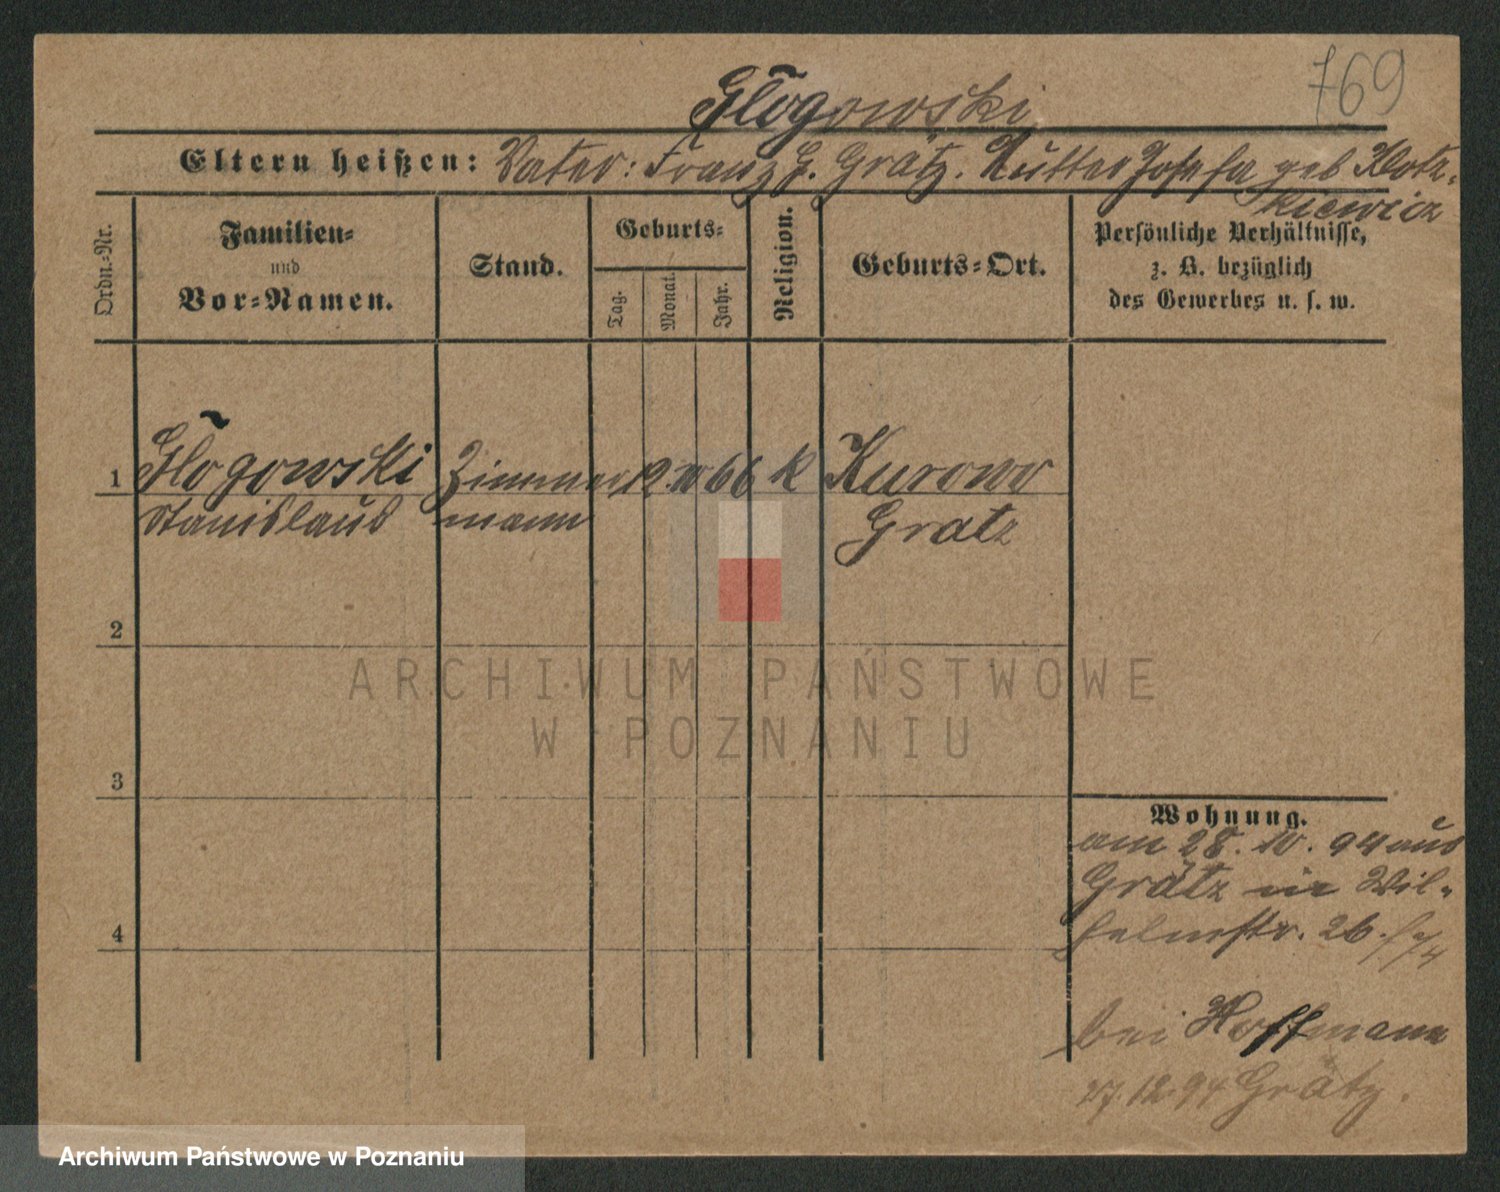 769
Głogowski
Eltern heißen: Vater: Franz G. Grätz. Mutter Josefa geb Klotz-
kiewicz
Ordn.-Nr.
Familien-
und
Vor-Namen.
Stand.
Geburts-
Tag.
Monat.
Jahr.
Religion.
Geburts-Ort.
Persönliche Verhältnisse,
z. B. bezüglich
des Gewerbes u. s. w.
1 Głogowski Zimmer 12. 10 66 k Kurowo
Stanislaus mann Gratz
2
3
4
Wohnung.
am 28. 10. 94 aus
Grätz in Wil-
helmstr. 26.
bei Hoffmann
27.12.94 Grätz.
ARCHIWUM PAŃSTWOWE
W POZNANIU
Archiwum Państwowe w Poznaniu